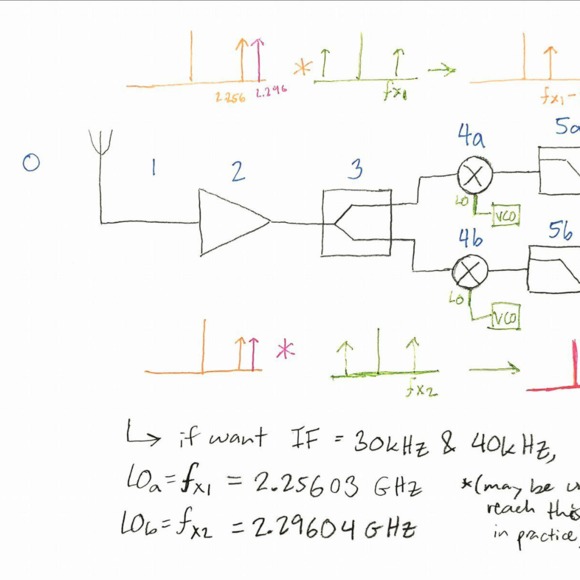 2.256 2.296
*
fx₁
fx₁ -
0 1 2 3 4a 5a
X
LO
VCO
4b 5b
X
LO
VCO
*
fx₂
↳ if want IF = 30kHz & 40kHz,
LOa = fx₁ = 2.25603 GHz *(may be
LOb = fx₂ = 2.29604 GHz
reach this
in practice,